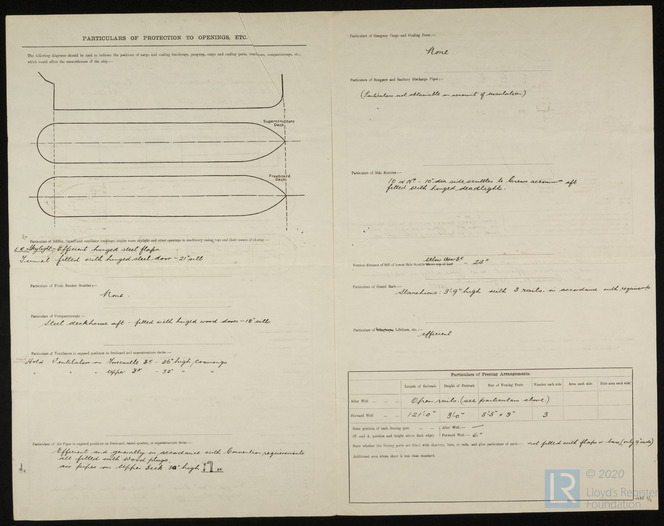 PARTICULARS OF PROTECTION TO OPENINGS, ETC.
The following diagrams should be used to indicate the positions of cargo and coaling hatchways, gangway, cargo and coaling ports, ventilators, companionways, etc.,
which would affect the seaworthiness of the ship:—
Superstructure Deck
Freeboard Deck
Skylight - Efficient hinged steel flaps.
Tunnel - fitted with hinged steel door - 21" sill
Particulars of Flush Bunker Scuttles:—
None.
Particulars of Companionways:—
Steel deckhouse aft - fitted with hinged wood doors - 18" sills
Particulars of Ventilators in exposed positions on freeboard and superstructure decks:—
Hold Ventilators on Forecastle Dk - 36" high, coamings
" " " Upper Dk - 35" "
Particulars of Air Pipes in exposed positions on freeboard, raised quarter, or superstructure decks:—
Efficient and generally in accordance with Convention requirements
all fitted with wood plugs.
air pipes on Upper Deck high
Particulars of Gangway Cargo and Coaling Ports:—
None
Particulars of Scuppers and Sanitary Discharge Pipes:—
(Particulars not obtainable on account of)
Particulars of Side Scuttles:—
10 in Nº - 10" dia side scuttles to Crews accomm. aft
fitted with hinged deadlights.
Vertical distance of Sill of Lowest Side Scuttle
Particulars of Guard Rails:—
Stanchions 3'-9" high with 3 rails, in accordance with requirements
Particulars of Gangways, Lifelines, etc.:—
efficient
Particulars of Freeing Arrangements.
Length of Bulwark. Height of Bulwark. Size of Freeing Ports. Number each side. Area each side.
After Well Open rails. (see particulars above.)
Forward Well 121'-0" 3'-0" 3
State position of each freeing port After Well:—
(F. and A. position and height above deck edge) Forward Well:— 6"
State whether the freeing ports are fitted with shutters, bars, or rails, and give particulars of such:— not fitted with flaps or bars (only
Additional area where sheer is less than standard.
LR
© 2020
Lloyd's Register
Foundation